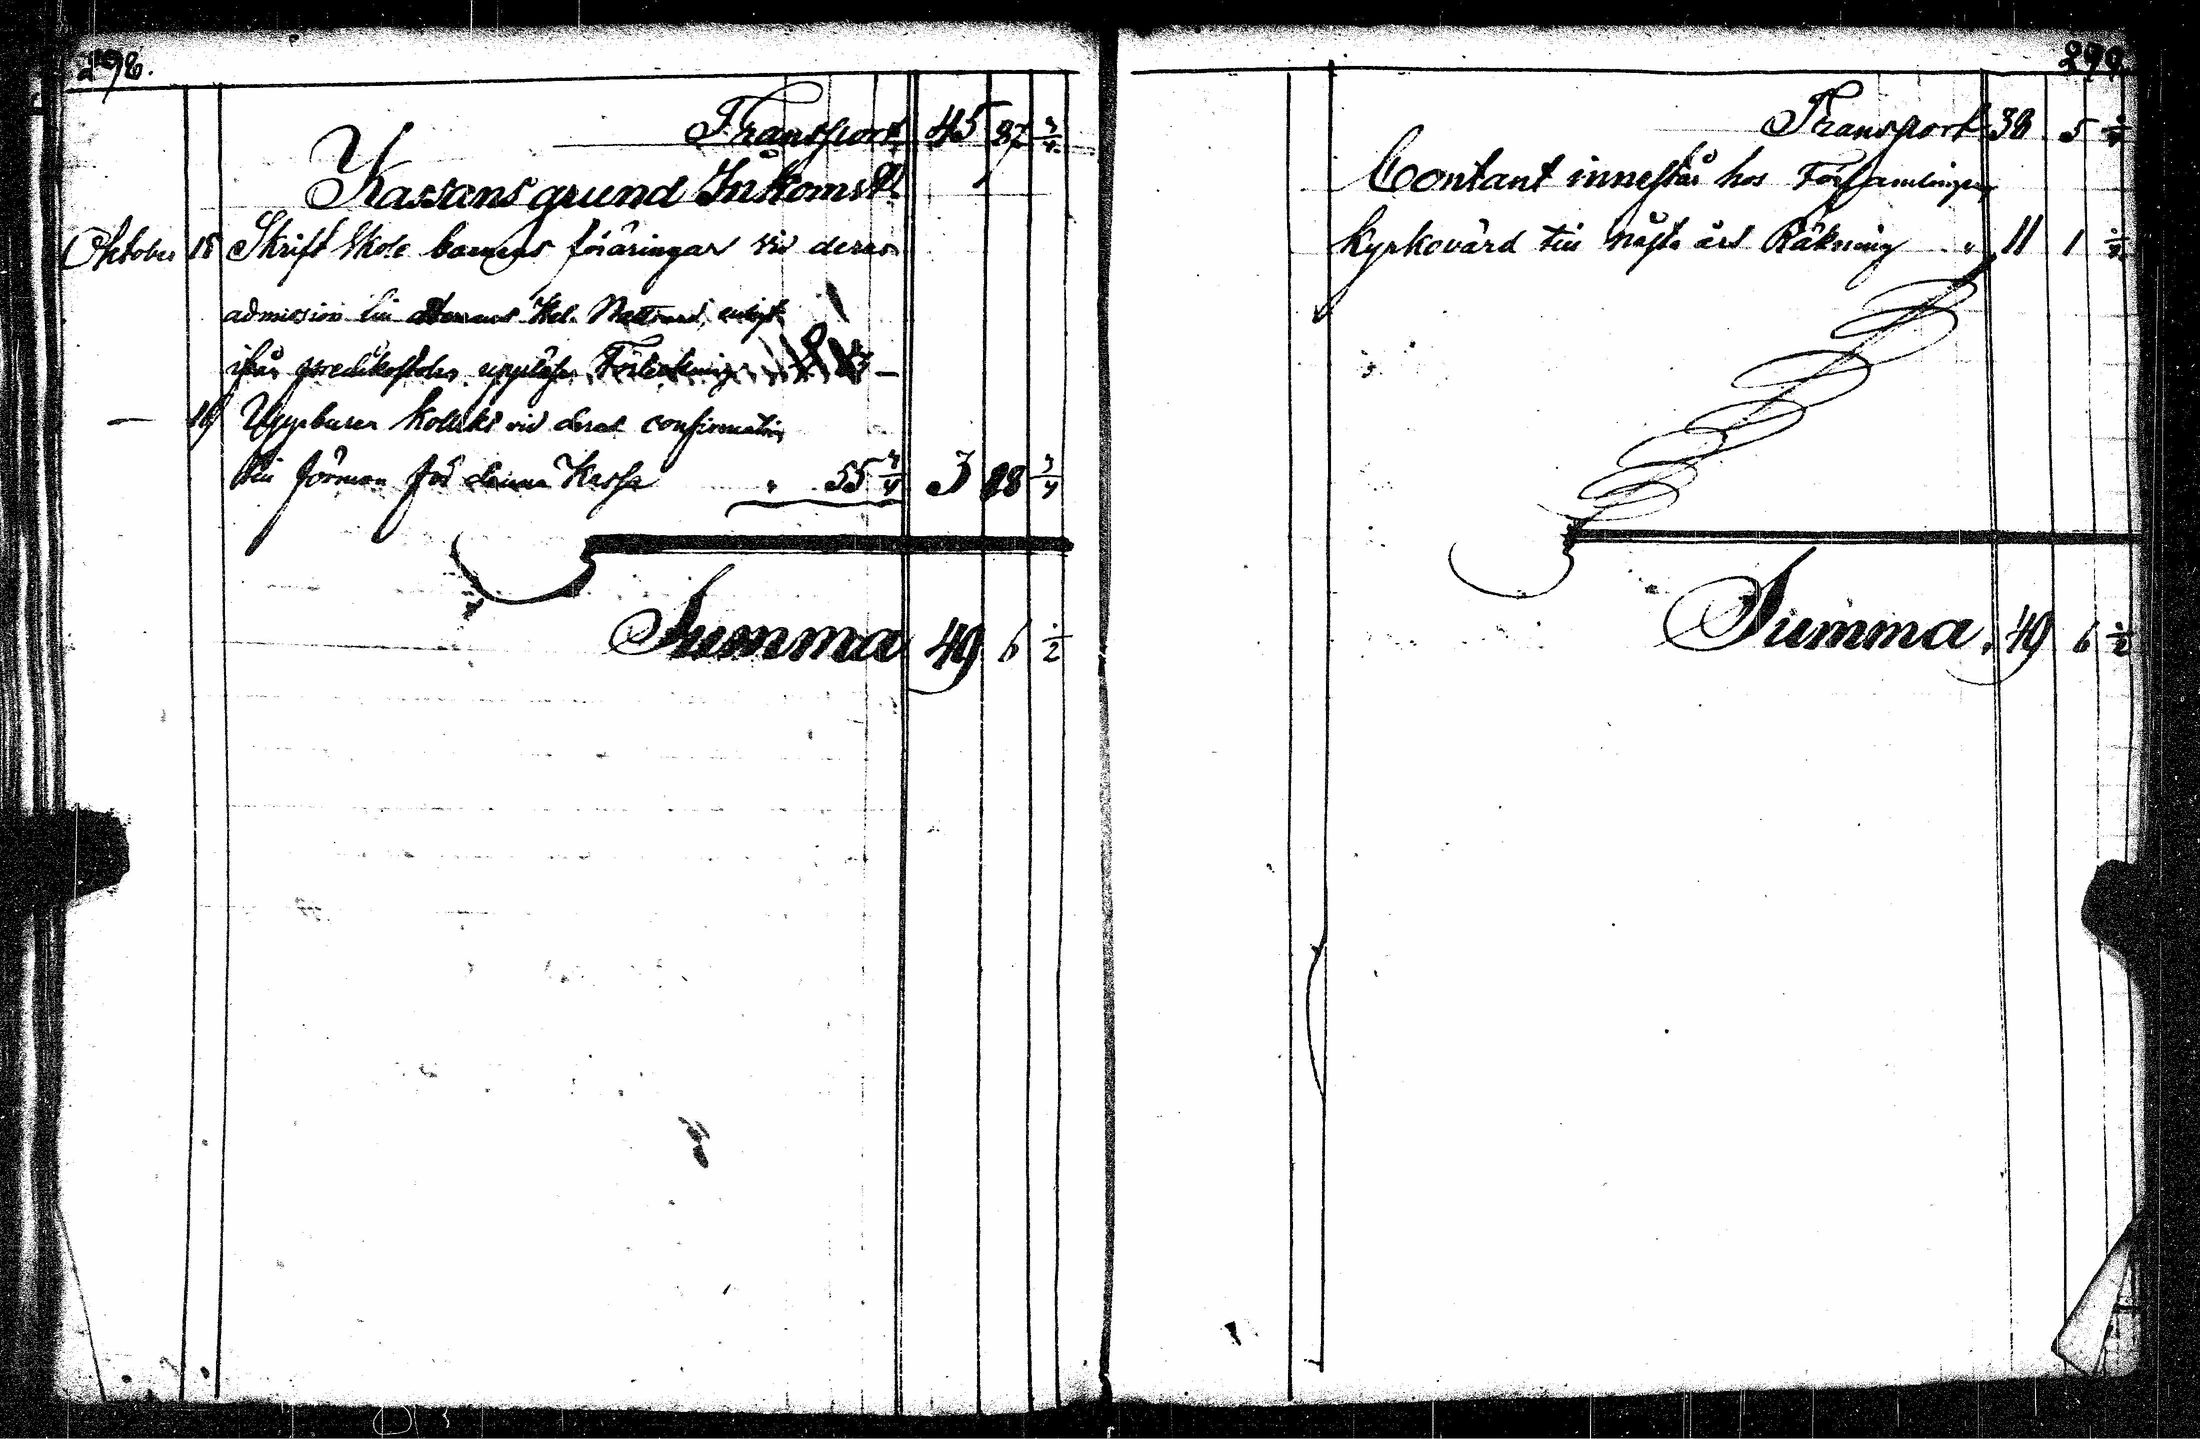 298.
Transport 45 87 3/4
Kassans grund Inkomst
October 18 Skrift Skole barnens föräringar vid deras
admission till Herrans Hel. Nattvard, enligt
ifrån predikostolen uppläsen Förteckning
— 19 Uppburen Kollekt vid deras confirmation
till förmon för denna Kassa " 55 3/4 3 18 3/4
Summa 49 6 1/2
299.
Transport 38 5 1/4
Contant innestår hos Församlingens
Kyrkovärd till näste års Räkning " 11 1 1/4
Summa 49 6 1/2